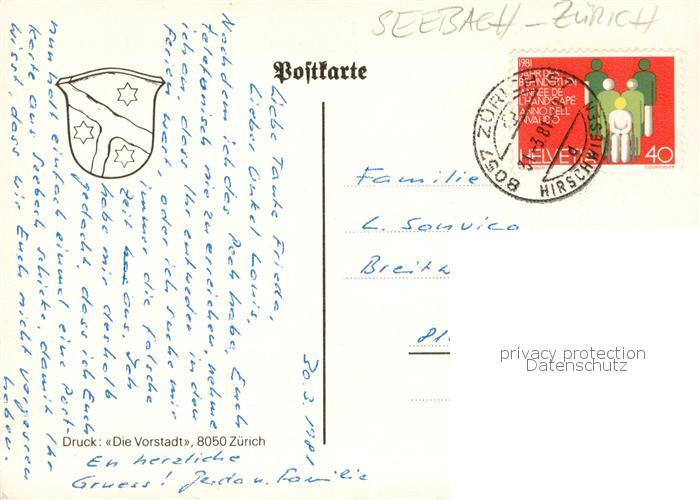 SEEBACH – ZÜRICH
Postkarte
1981
JAHR DER
BEHINDERTEN
ANNEE DE
L'HANDICAPE
ANNO DELL'
INVALIDO
HELVETIA 40
8057 ZÜRICH
HIRSCHWIESEN
30.3.1981
Liebe Tante Frieda,
lieber Onkel Louis,
Nachdem ich das Pech habe, Euch
telefonisch nie zu erreichen, nehme
ich an, dass Ihr entweder in den
Ferien wart, oder ich suche mir
immer die falsche
Zeit aus. Ich
habe mir deshalb
gedacht, dass ich Euch
nun halt einfach einmal eine Post-
karte aus Seebach schicke, damit Ihr
wisst, dass wir Euch nicht vergessen
haben.
En herzliche
Gruess! Gerda u. Familie
Familie
L. Sanvico
Breitw
81
Druck: «Die Vorstadt», 8050 Zürich
privacy protection
Datenschutz